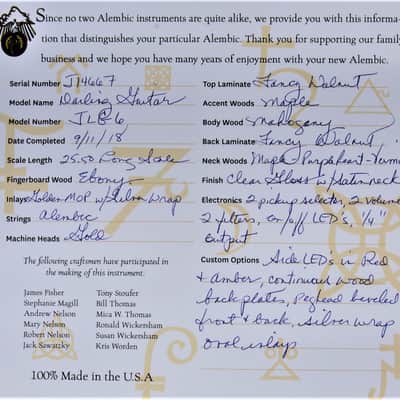 Since no two Alembic instruments are quite alike, we provide you with this informa-
tion that distinguishes your particular Alembic. Thank you for supporting our family
business and we hope you have many years of enjoyment with your new Alembic.
Serial Number J14667
Model Name Darling Guitar
Model Number JLB6
Date Completed 9/11/18
Scale Length 25.50 Long Scale
Fingerboard Wood Ebony
Inlays Golden MOP w/Silver Wrap
Strings Alembic
Machine Heads Gold
The following craftsmen have participated in
the making of this instrument.
James Fisher Tony Stoufer
Stephanie Magill Bill Thomas
Andrew Nelson Mica W. Thomas
Mary Nelson Ronald Wickersham
Robert Nelson Susan Wickersham
Jack Sawatzky Kris Worden
100% Made in the U.S.A
Top Laminate Fancy Walnut
Accent Woods Maple
Body Wood Mahogany
Back Laminate Fancy Walnut,
Neck Woods Maple Purpleheart-Verm
Finish Clear Gloss w/satin neck
Electronics 2 pickup selector, 2 volume
2 filters, on/off LED's, 1/4"
output
Custom Options Side LEDs in Red
+ amber, continuous wood
backplates, peghead beveled
front & back, silver wrap
oval inlays